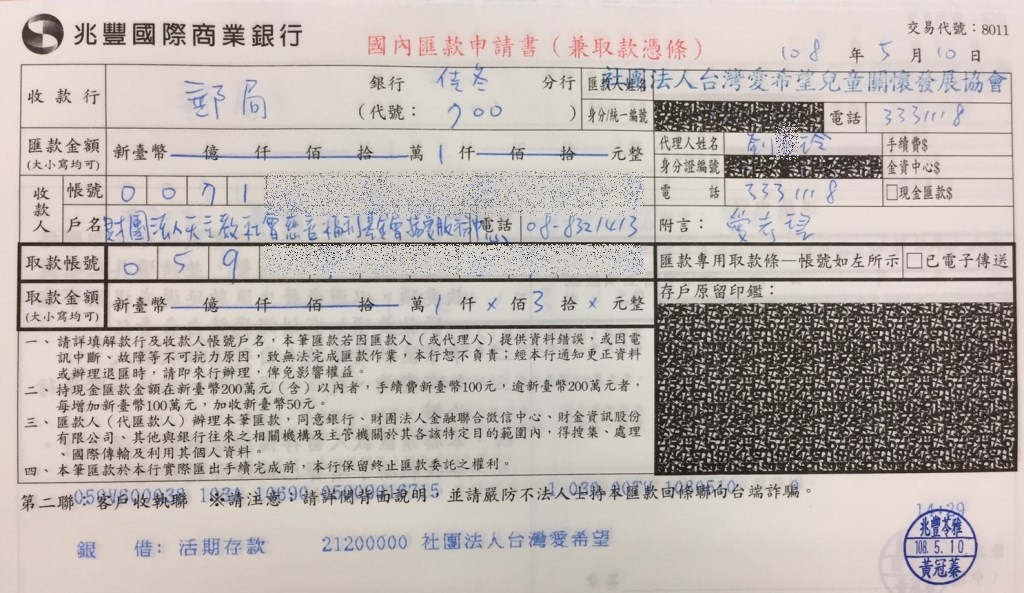 兆豐國際商業銀行
國內匯款申請書（兼取款憑條）
交易代號：8011
108 年 5 月 10 日
收款行 郵局 銀行 佳冬 分行
（代號： 700 ）
匯款人姓名 社團法人台灣愛希望兒童關懷發展協會
身分/統一編號 電話 3331118
匯款金額 新臺幣 億 仟 佰 拾 萬 1 仟 佰 拾 元整
(大小寫均可)
代理人姓名 手續費$
身分證編號 金資中心$
收款人 帳號 0071
電話 3331118 □現金匯款$
戶名 財團法人天主教社會慈善福利基金會 電話 08-8321413
附言： 愛希望
取款帳號 059
匯款專用取款條—帳號如左所示 □已電子傳送
取款金額 新臺幣 億 仟 佰 拾 萬 1 仟 × 佰 3 拾 × 元整
(大小寫均可)
存戶原留印鑑：
一、請詳填解款行及收款人帳號戶名，本筆匯款若因匯款人（或代理人）提供資料錯誤，或因電
訊中斷、故障等不可抗力原因，致無法完成匯款作業，本行恕不負責；經本行通知更正資料
或辦理退匯時，請即來行辦理，俾免影響權益。
二、持現金匯款金額在新臺幣200萬元（含）以內者，手續費新臺幣100元，逾新臺幣200萬元者，
每增加新臺幣100萬元，加收新臺幣50元。
三、匯款人（代匯款人）辦理本筆匯款，同意銀行、財團法人金融聯合徵信中心、財金資訊股份
有限公司、其他與銀行往來之相關機構及主管機關於其各該特定目的範圍內，得搜集、處理
、國際傳輸及利用其個人資料。
四、本筆匯款於本行實際匯出手續完成前，本行保留終止匯款委託之權利。
第二聯：客戶收執聯 ※請注意：請詳閱背面說明，並請嚴防不法人士持本匯款回條聯向台端詐騙。
14:29
銀 借：活期存款 21200000 社團法人台灣愛希望
兆豐苓雅
108.5.10
黃冠蓁